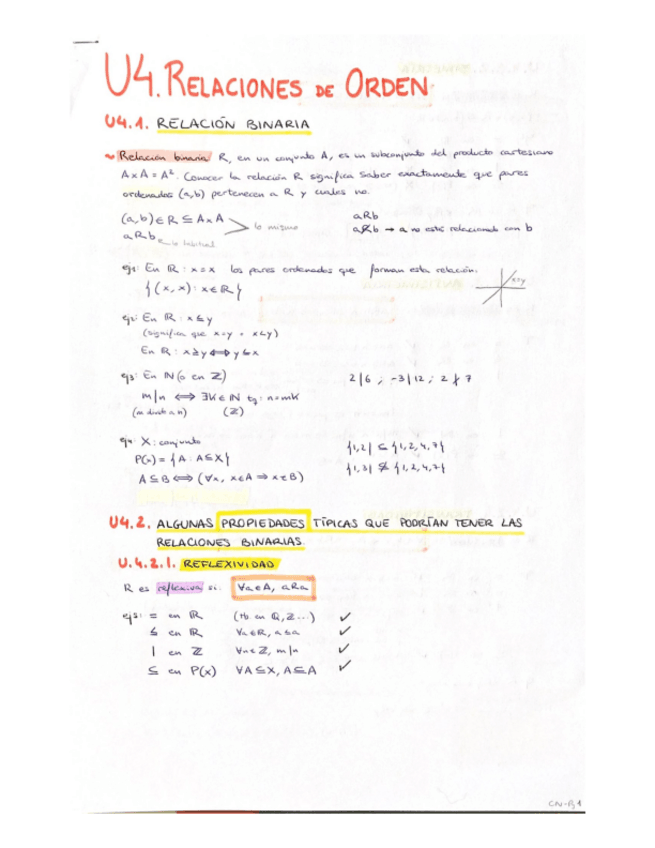 U4. RELACIONES DE ORDEN
U4.1. RELACIÓN BINARIA
~ Relación binaria R, en un conjunto A, es un subconjunto del producto cartesiano
A×A = A². Conocer la relación R significa saber exactamente que pares
ordenados (a,b) pertenecen a R y cuales no.
(a,b) ∈ R ⊆ A×A
aRb lo habitual
lo mismo
aRb
a R̸ b → a no está relacionado con b
ej1: En ℝ : x=x los pares ordenados que forman esta relación.
{(x,x) : x∈ℝ}
x=y
ej2: En ℝ : x≤y
(significa que x=y o x<y)
En ℝ : x≥y ⟺ y≤x
ej3: En ℕ (o en ℤ)
2|6 ; -3|12 ; 2∤7
m|n ⟺ ∃K∈ℕ tq: n=mK
(m divide a n) (ℤ)
ej4: X: conjunto
P(x) = {A : A⊆X}
A⊆B ⟺ (∀x, x∈A ⇒ x∈B)
{1,2} ⊆ {1,2,4,7}
{1,3} ⊈ {1,2,4,7}
U4.2. ALGUNAS PROPIEDADES TÍPICAS QUE PODRÍAN TENER LAS
RELACIONES BINARIAS.
U.4.2.1. REFLEXIVIDAD
R es reflexiva si: ∀a∈A, aRa
ejs: = en ℝ (tb en ℚ, ℤ...) ✓
≤ en ℝ ∀a∈ℝ, a≤a ✓
| en ℤ ∀n∈ℤ, m|n ✓
⊆ en P(x) ∀A⊆X, A⊆A ✓